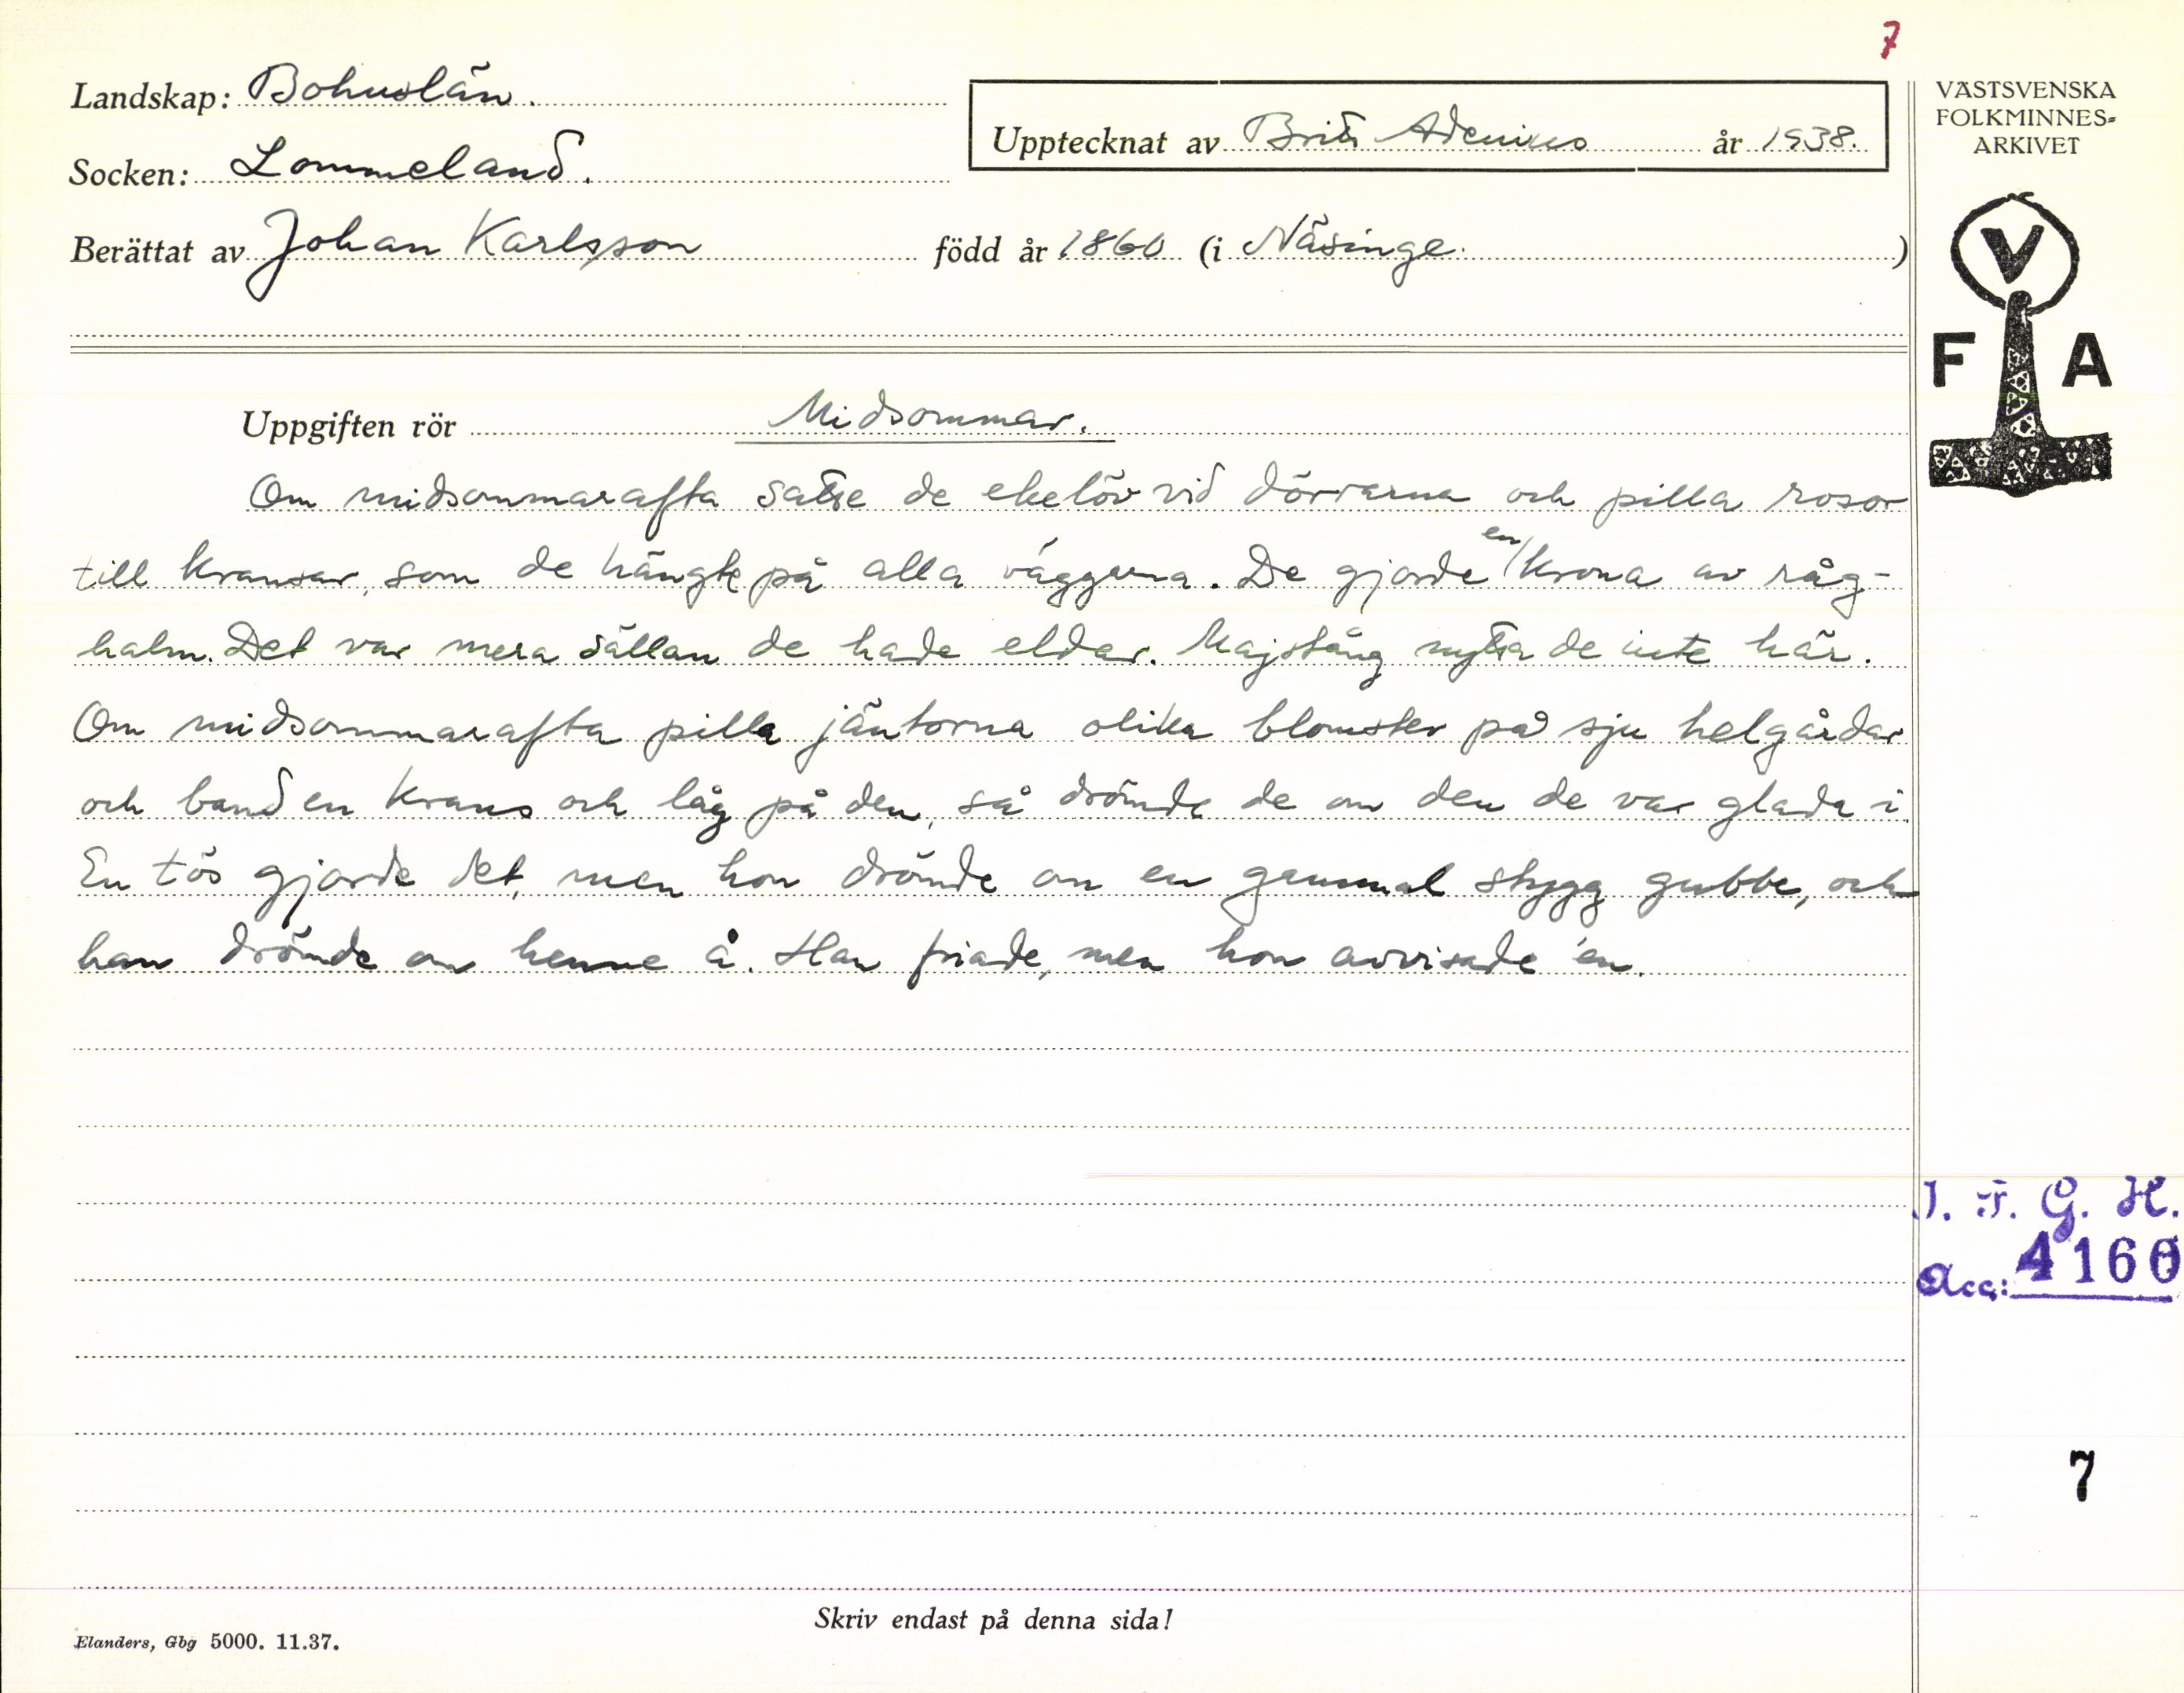 7
Landskap: Bohuslän.
Socken: Lommeland.
Upptecknat av Brita Adenius år 1938.
Berättat av Johan Karlsson född år 1860 (i Näsinge.)
VÄSTSVENSKA
FOLKMINNES-
ARKIVET
V
F A
Uppgiften rör Midsommar.
Om midsommarafta satte de ekelöv vid dörrarna och pilla rosor
till kransar, som de hängte på alla väggarna. De gjorde en krona av råg-
halm. Det var mera sällan de hade eldar. Majstång nytta de inte här.
Om midsommarafta pilla jäntorna olika blomster på sju helgårdar
och band en krans och låg på den, så drömde de om den de var glada i.
En tös gjorde det, men hon drömde om en gammal stygg gubbe, och
han drömde om henne å. Han friade, men hon avvisade 'en.
I. F. G. H.
Acc: 4160
7
Skriv endast på denna sida!
Elanders, Gbg 5000. 11.37.